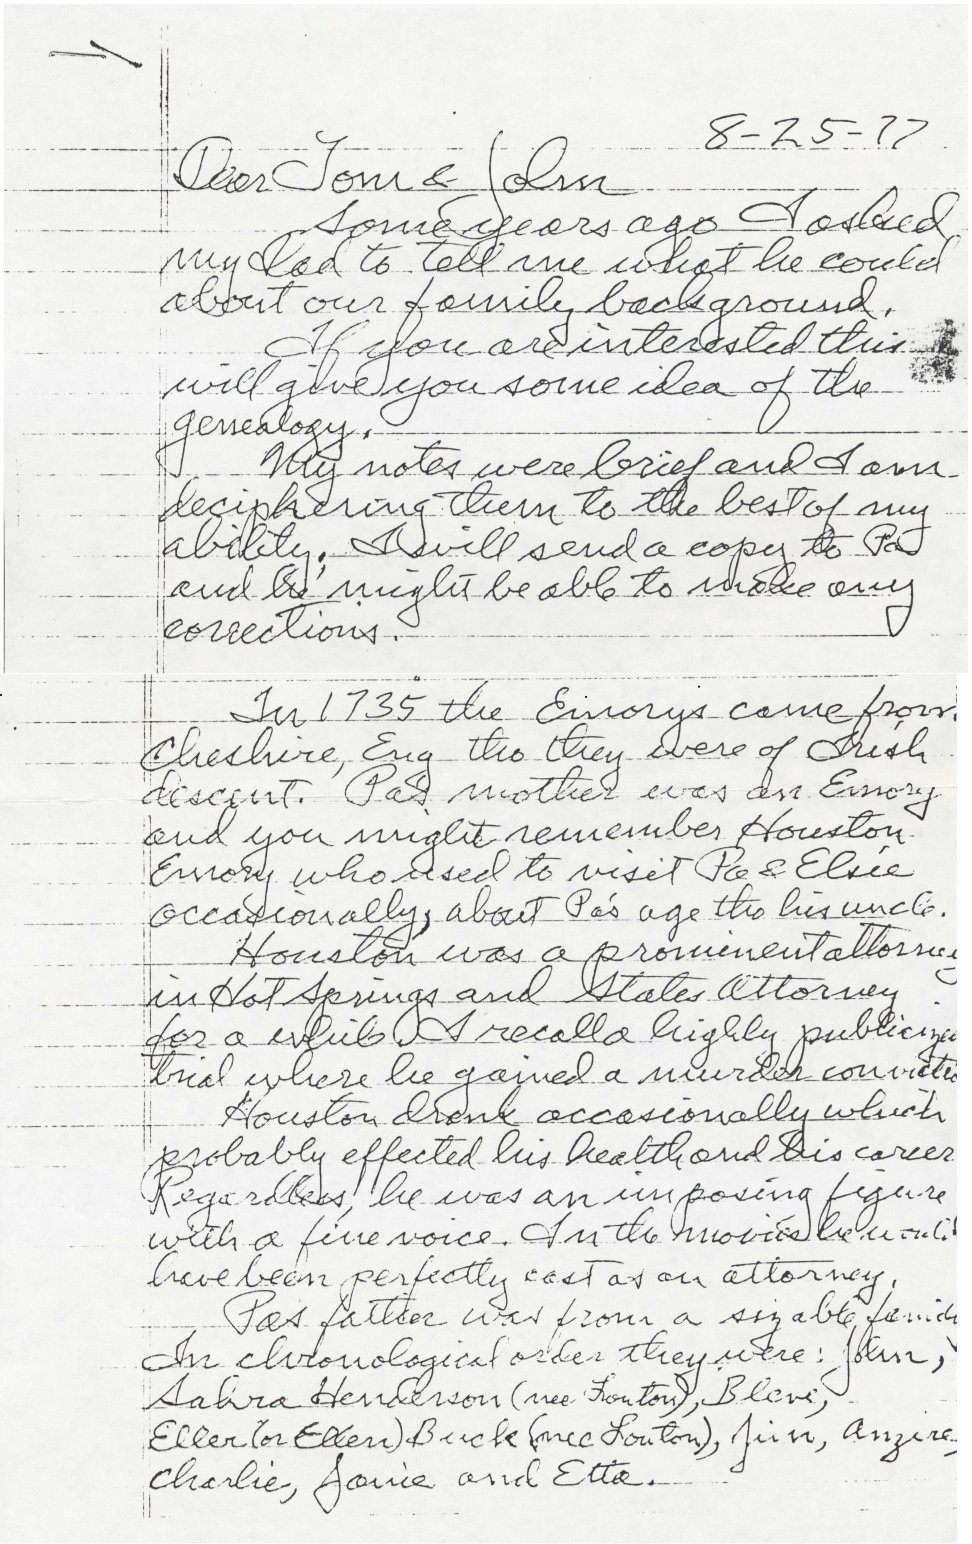 8-25-77
Dear Tom & John
Some years ago I asked
my Dad to tell me what he could
about our family background.
If you are interested this
will give you some idea of the
genealogy.
My notes were brief and I am
deciphering them to the best of my
ability. I will send a copy to Pa
and he might be able to make any
corrections.
In 1735 the Emorys came from
Cheshire, Eng tho they were of Irish
descent. Pa's mother was an Emory
and you might remember Houston
Emory who used to visit Pa & Elsie
occasionally, about Pa's age tho his uncle.
Houston was a prominent attorney
in Hot Springs and States Attorney
for a while. I recall a highly publicize
trial where he gained a murder convictio
Houston drank occasionally which
probably effected his health and his career
Regardless, he was an imposing figure
with a fine voice. In the movies he would
have been perfectly cast as an attorney.
Pa's father was from a sizable family
In chronological order they were: John,
Sabra Henderson (nee Fouton), Bleve,
Eller (or Ellen) Buck (nee Fouton), Jim, Anzire,
Charlie, Janie and Etta.